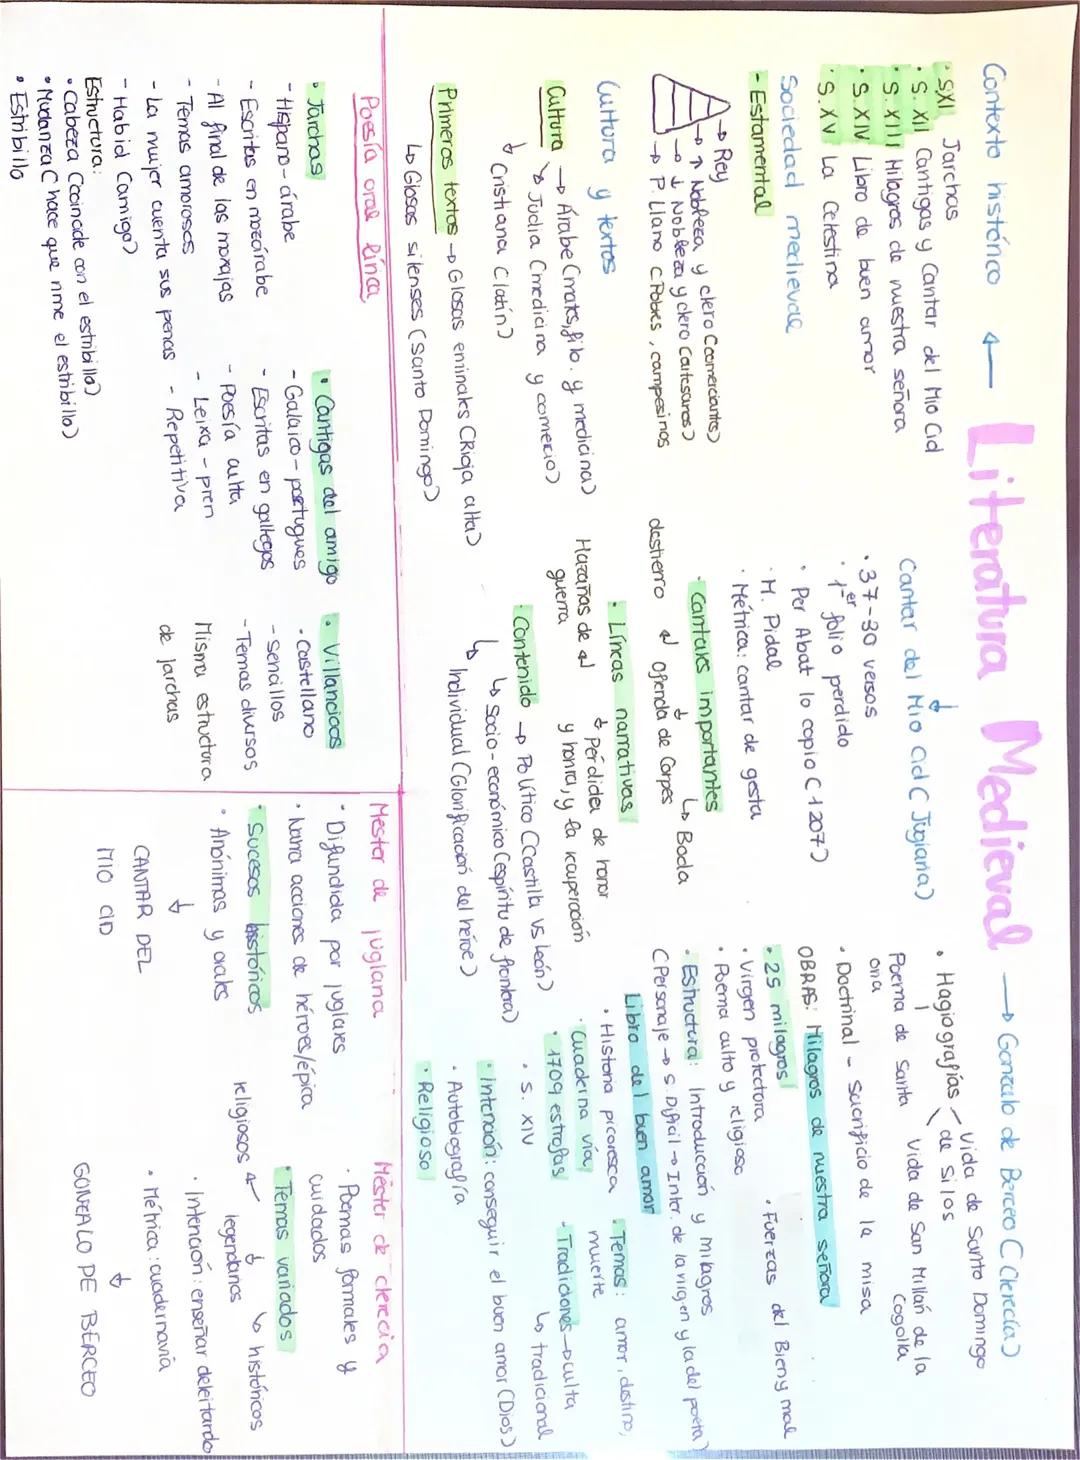 Literatura Medieval
Contexto histórico ←
· SXI Jarchas
· S. XII Cantigas y Cantar del Mio Cid
· S. XIII Milagros de nuestra señora
· S. XIV Libro de buen amor
· S. XV La Celestina
Sociedad medievale
- Estamental
→ Rey
→ ↑ Nobleza y clero (comerciantes)
→ ↓ Nobleza y clero (cortesanos)
→ P. Llano (Pobres, campesinos
Cultura y textos
Cultura → Árabe (mates, filo. y medicina)
↘ Judía (medicina y comercio)
↓ Cristiana (latín)
Primeros textos → Glosas eminales (Rioja alta)
↳ Glosas silenses (Santo Domingo)
↓
Cantar del Mio Cid (Jugiaria)
· 37-30 versos
· 1er folio perdido
· Per Abat lo copio (1207)
· M. Pidal
· Métrica: cantar de gesta
· Cantares importantes
destierro ↲ ↓ ofenda de Corpes ↳ Boda
· Líricas narrativas
Hazañas de ↲ guerra
↓ Pérdida de honor y honra, y la recuperación
· Contenido → Político (Castilla vs León)
↳ Socio-económico (espíritu de frontera)
↳ Individual (Glorificación del héroe)
→ Gonzalo de Berceo (Clerecía)
· Hagiografías < vida de Santo Domingo de Silos
Poema de Santa oria
vida de San Millán de la Cogolla
· Doctrinal - Sacrificio de la misa
OBRAS: Milagros de nuestra señora
· 25 milagros
· Virgen protectora
· Fuerzas del Bien y mal
· Poema culto y religioso
· Estructura: Introducción y milagros
(Personaje → S. Difícil → Inter. de la virgen y la del poeta)
Libro del buen amor
· Historia picaresca
· Cuaderna vía
· 1709 estrofas
· S. XIV
· Temas: amor, destino, muerte
· Tradiciones → culta
↳ tradicional
· Intención: conseguir el buen amor (Dios)
· Autobiografía
· Religioso
Poesía oral lírica
· Jarchas
- Hispano-árabe
- Escritos en mozárabe
- Al final de las moxajas
- Temas amorosos
- La mujer cuenta sus penas
- Habid (amigo)
Estructura:
· Cabeza (coincide con el estribillo)
· Mudanza (hace que rime el estribillo)
· Estribillo
· Cantigas del amigo
- Galaico-portugues
- Escritas en gallegos
- Poesía culta
- Leixa-pren
- Repetitiva
· Villancicos
· Castellano
- sencillos
- Temas diversos
Misma estructura de jarchas
Mester de juglaria
· Difundida por juglares
· Narra acciones de héroes/épica
· Sucesos históricos
· Anónimas y orales
↓
CANTAR DEL
MIO CID
Mester de clerecia
· Poemas formales y cuidados
· Temas variados
religiosos ↲ ↓ legendarios ↳ históricos
· Intención: enseñar deleitando
· Métrica: cuadernavia
↓
GONZALO DE BERCEO